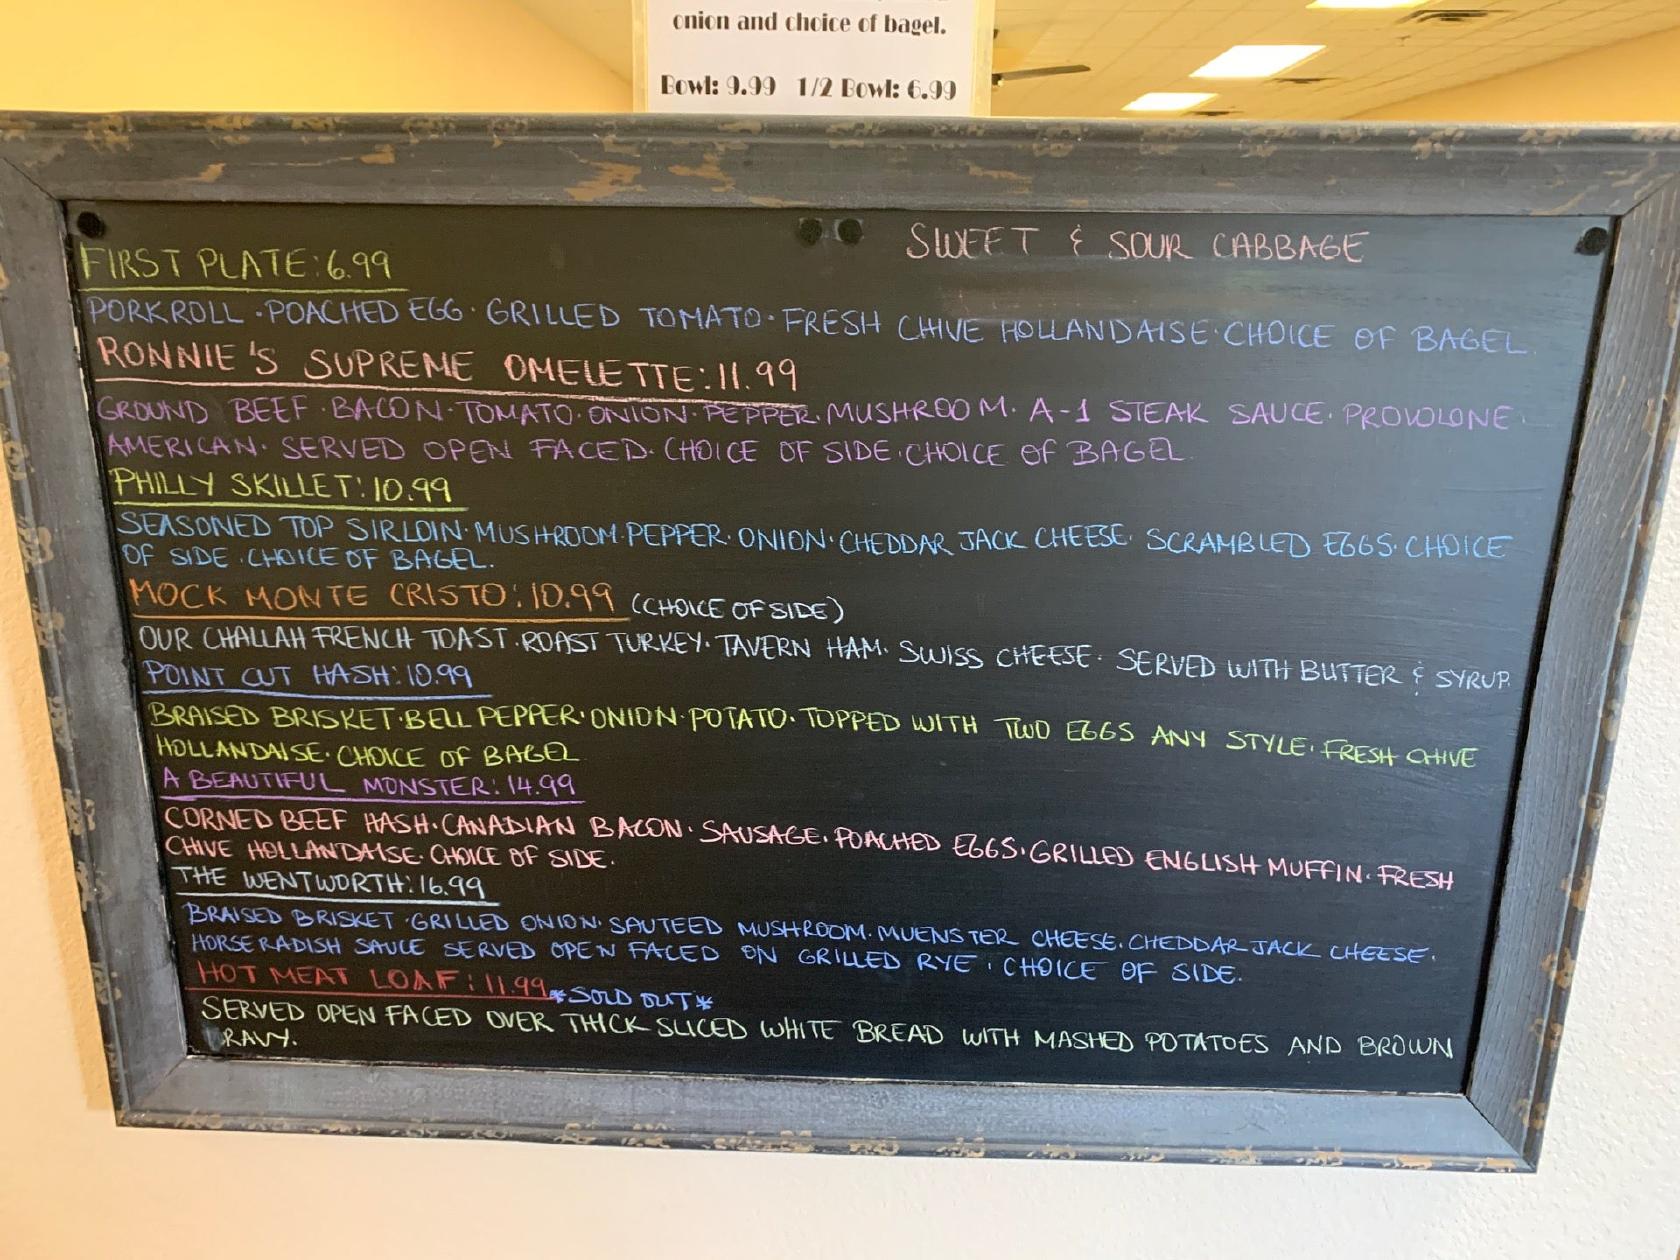 onion and choice of bagel.
Bowl: 9.99 1/2 Bowl: 6.99
SWEET & SOUR CABBAGE
FIRST PLATE: 6.99
PORKROLL · POACHED EGG · GRILLED TOMATO · FRESH CHIVE HOLLANDAISE · CHOICE OF BAGEL.
RONNIE'S SUPREME OMELETTE: 11.99
GROUND BEEF · BACON · TOMATO · ONION · PEPPER · MUSHROOM · A-1 STEAK SAUCE · PROVOLONE ·
AMERICAN · SERVED OPEN FACED · CHOICE OF SIDE · CHOICE OF BAGEL.
PHILLY SKILLET: 10.99
SEASONED TOP SIRLOIN · MUSHROOM · PEPPER · ONION · CHEDDAR JACK CHEESE · SCRAMBLED EGGS · CHOICE
OF SIDE · CHOICE OF BAGEL.
MOCK MONTE CRISTO: 10.99 (CHOICE OF SIDE)
OUR CHALLAH FRENCH TOAST · ROAST TURKEY · TAVERN HAM · SWISS CHEESE · SERVED WITH BUTTER & SYRUP.
POINT CUT HASH: 10.99
BRAISED BRISKET · BELL PEPPER · ONION · POTATO · TOPPED WITH TWO EGGS ANY STYLE · FRESH CHIVE
HOLLANDAISE · CHOICE OF BAGEL
A BEAUTIFUL MONSTER: 14.99
CORNED BEEF HASH · CANADIAN BACON · SAUSAGE · POACHED EGGS · GRILLED ENGLISH MUFFIN · FRESH
CHIVE HOLLANDAISE · CHOICE OF SIDE.
THE WENTWORTH: 16.99
BRAISED BRISKET · GRILLED ONION · SAUTEED MUSHROOM · MUENSTER CHEESE · CHEDDAR JACK CHEESE ·
HORSERADISH SAUCE SERVED OPEN FACED ON GRILLED RYE · CHOICE OF SIDE.
HOT MEAT LOAF: 11.99 *SOLD OUT*
SERVED OPEN FACED OVER THICK SLICED WHITE BREAD WITH MASHED POTATOES AND BROWN
GRAVY.